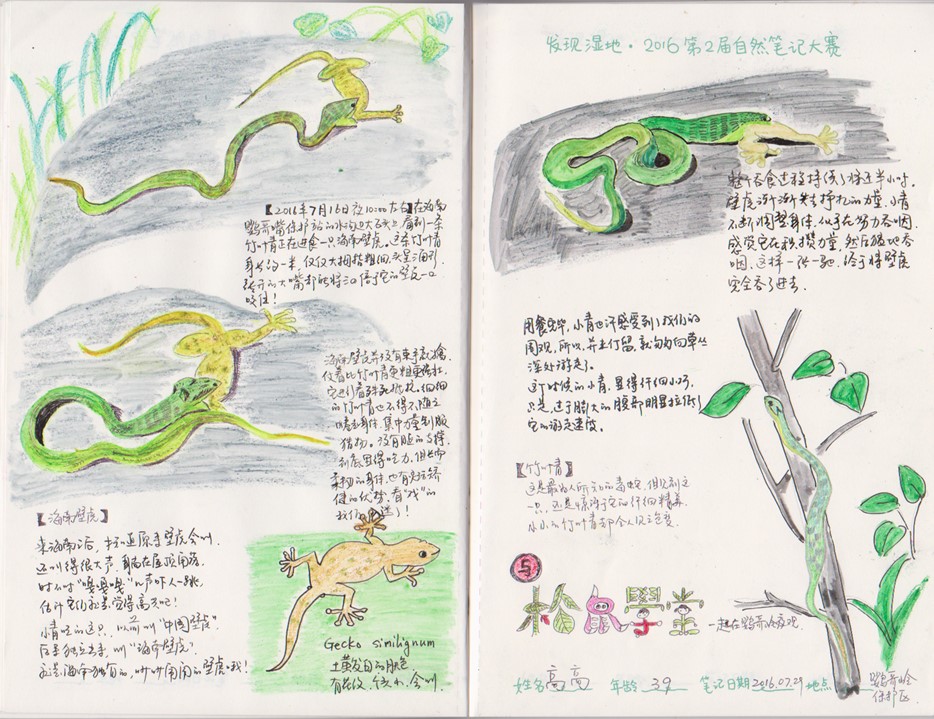 【2016年7月16日夜10:00左右】在海南
鹦哥岭保护站的水沟旁大石头上,看到一条
竹叶青正在进食一只海南壁虎。这条竹叶青
身长约一米,仅仅大拇指粗细,头呈三角形,
咬住!
海南壁虎并没有束手就擒,
仗着比竹叶青更粗更
它进行着殊死抵抗。细细
的竹叶青也不得不随之
身体,集中力量制服
猎物。没有腿的支撑,
到底显得吃力,但
的身体,也有
健的优势,看“戏”的
我们
【海南壁虎】
来海南后,才知道原来壁虎会叫,
还叫得很大声,身居在屋顶角落,
时不时“嘎嘎嘎”几声吓人一跳,
估计它们就是觉得高兴吧!
小青吃的这只,以前叫“中国壁虎”
后来独立出来,叫“海南壁虎”
就是海南独有的,
Gecko similignum
土黄发白的肤色
有花纹,
会叫
发现湿地·2016第2届自然笔记大赛
整个吞食过程持续了将近半小时,
壁虎渐渐失去挣扎的力量,小青
不断调整身体,似乎在努力吞咽,
感觉它在积攒力量,然后猛地吞
咽,这样一张一弛,终于将壁虎
完全吞了进去。
用餐完毕,小青也许感受到了我们的
围观,所以,并未停留,就匆匆向草丛
深处游走了。
这时候的小青,显得纤细小巧,
只是,过于膨大的腹部明显拉低了
它的游走速度。
【竹叶青】
这是最为人所知的毒蛇,但见到这
一只,还是惊讶于它的纤细精美
小小的竹叶青却令人见之色变
与
松鼠學堂
一起在鹦哥岭夜观
姓名 高高 年龄 39 笔记日期 2016.07.29 地点 鹦哥岭
保护区